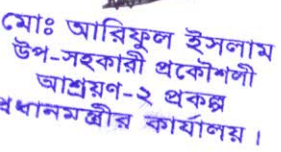 মোঃ আরিফুল ইসলাম
উপ-সহকারী প্রকৌশলী
আশ্রয়ণ-২ প্রকল্প
প্রধানমন্ত্রীর কার্যালয় ।